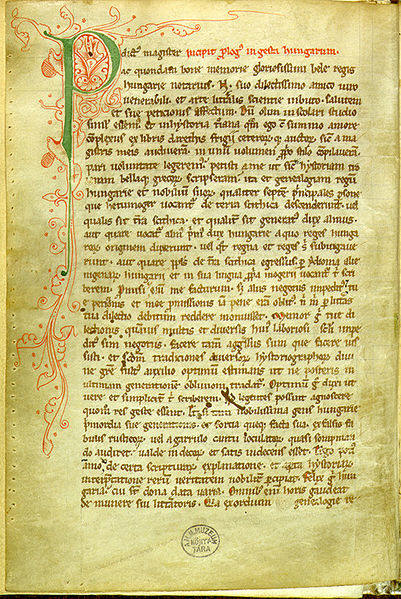 P dict' magister Incipit plog' in gesta hungarum.
ac quondam bone memorie gloriosissimi bele regis
hungarie notarius. N. suo dilectissimo amico viro
venerabili. et arte litalis scientie inbuto. salutem
et sue peticionis effectum. Dum olim in scolari studio
simul essem' et in hystoria troiana quam ego cum summo amore
complexus ex libris darethis frigii ceterorumque auctorum sicut a ma
gistris meis audiveram in unum volumen proprio stilo compilaveram
pari voluntate legerem'. petisti a me ut sicut hystoriam troia
nam bellaque grecorum scripseram. ita et genealogiam regum
hungarie et nobilium suorum. qualiter septem principales persone
que hetumoger vocantur de terra scithica descenderunt. vel
qualis sit terra scithica et qualiter sit generatus dux almus.
aut quare vocatur almus primus dux hungarie a quo reges hunga
rorum originem duxerunt. vel quot regna et reges sibi subiugave
runt. aut quare populus de terra scithica egressus per ydioma alie
nigenarum hungarii et in sua lingua propria mogerii vocantur tibi scri
berem. Promisi enim me facturum. sed aliis negotiis impeditus et tu
e petitionis et mee promissionis iam pene eram oblitus nisi mihi per litteras
tua dilectio debitum reddere monuisset. Memor igitur tue di
lectionis quamvis multis et diversis huius laboriosi seculi impe
ditus sim negotiis. facere tamen aggressus sum que facere ius
sisti. et secundum traditiones diversorum hystoriographorum divi
ne gratie fultus auxilio optimum estimans ut ne posteris in
ultimam generationem oblivioni tradatur. Optimum ergo duxi ut
vere et simpliciter tibi scriberem. quod legentes possint agnoscere
quomodo res geste essent. Et si tam nobilissima gens hungarie
primordia sue generationis et fortia queque facta sua. ex falsis fa
bulis rusticorum vel a garrulo cantu ioculatorum quasi sompnian
do audiret. valde indecorum et satis indecens esset. Ergo potius
ammodo de certa scripturarum explanatione et aperta hystoriarum
interpretatione rerum veritatem nobiliter percipiat. Felix igitur hun
garia cui sunt dona data varia. Omnibus enim horis gaudeat
de munere sui litteratoris. Quia exordium genealogie re
MUZEUM
KÖNYV
TÁRA